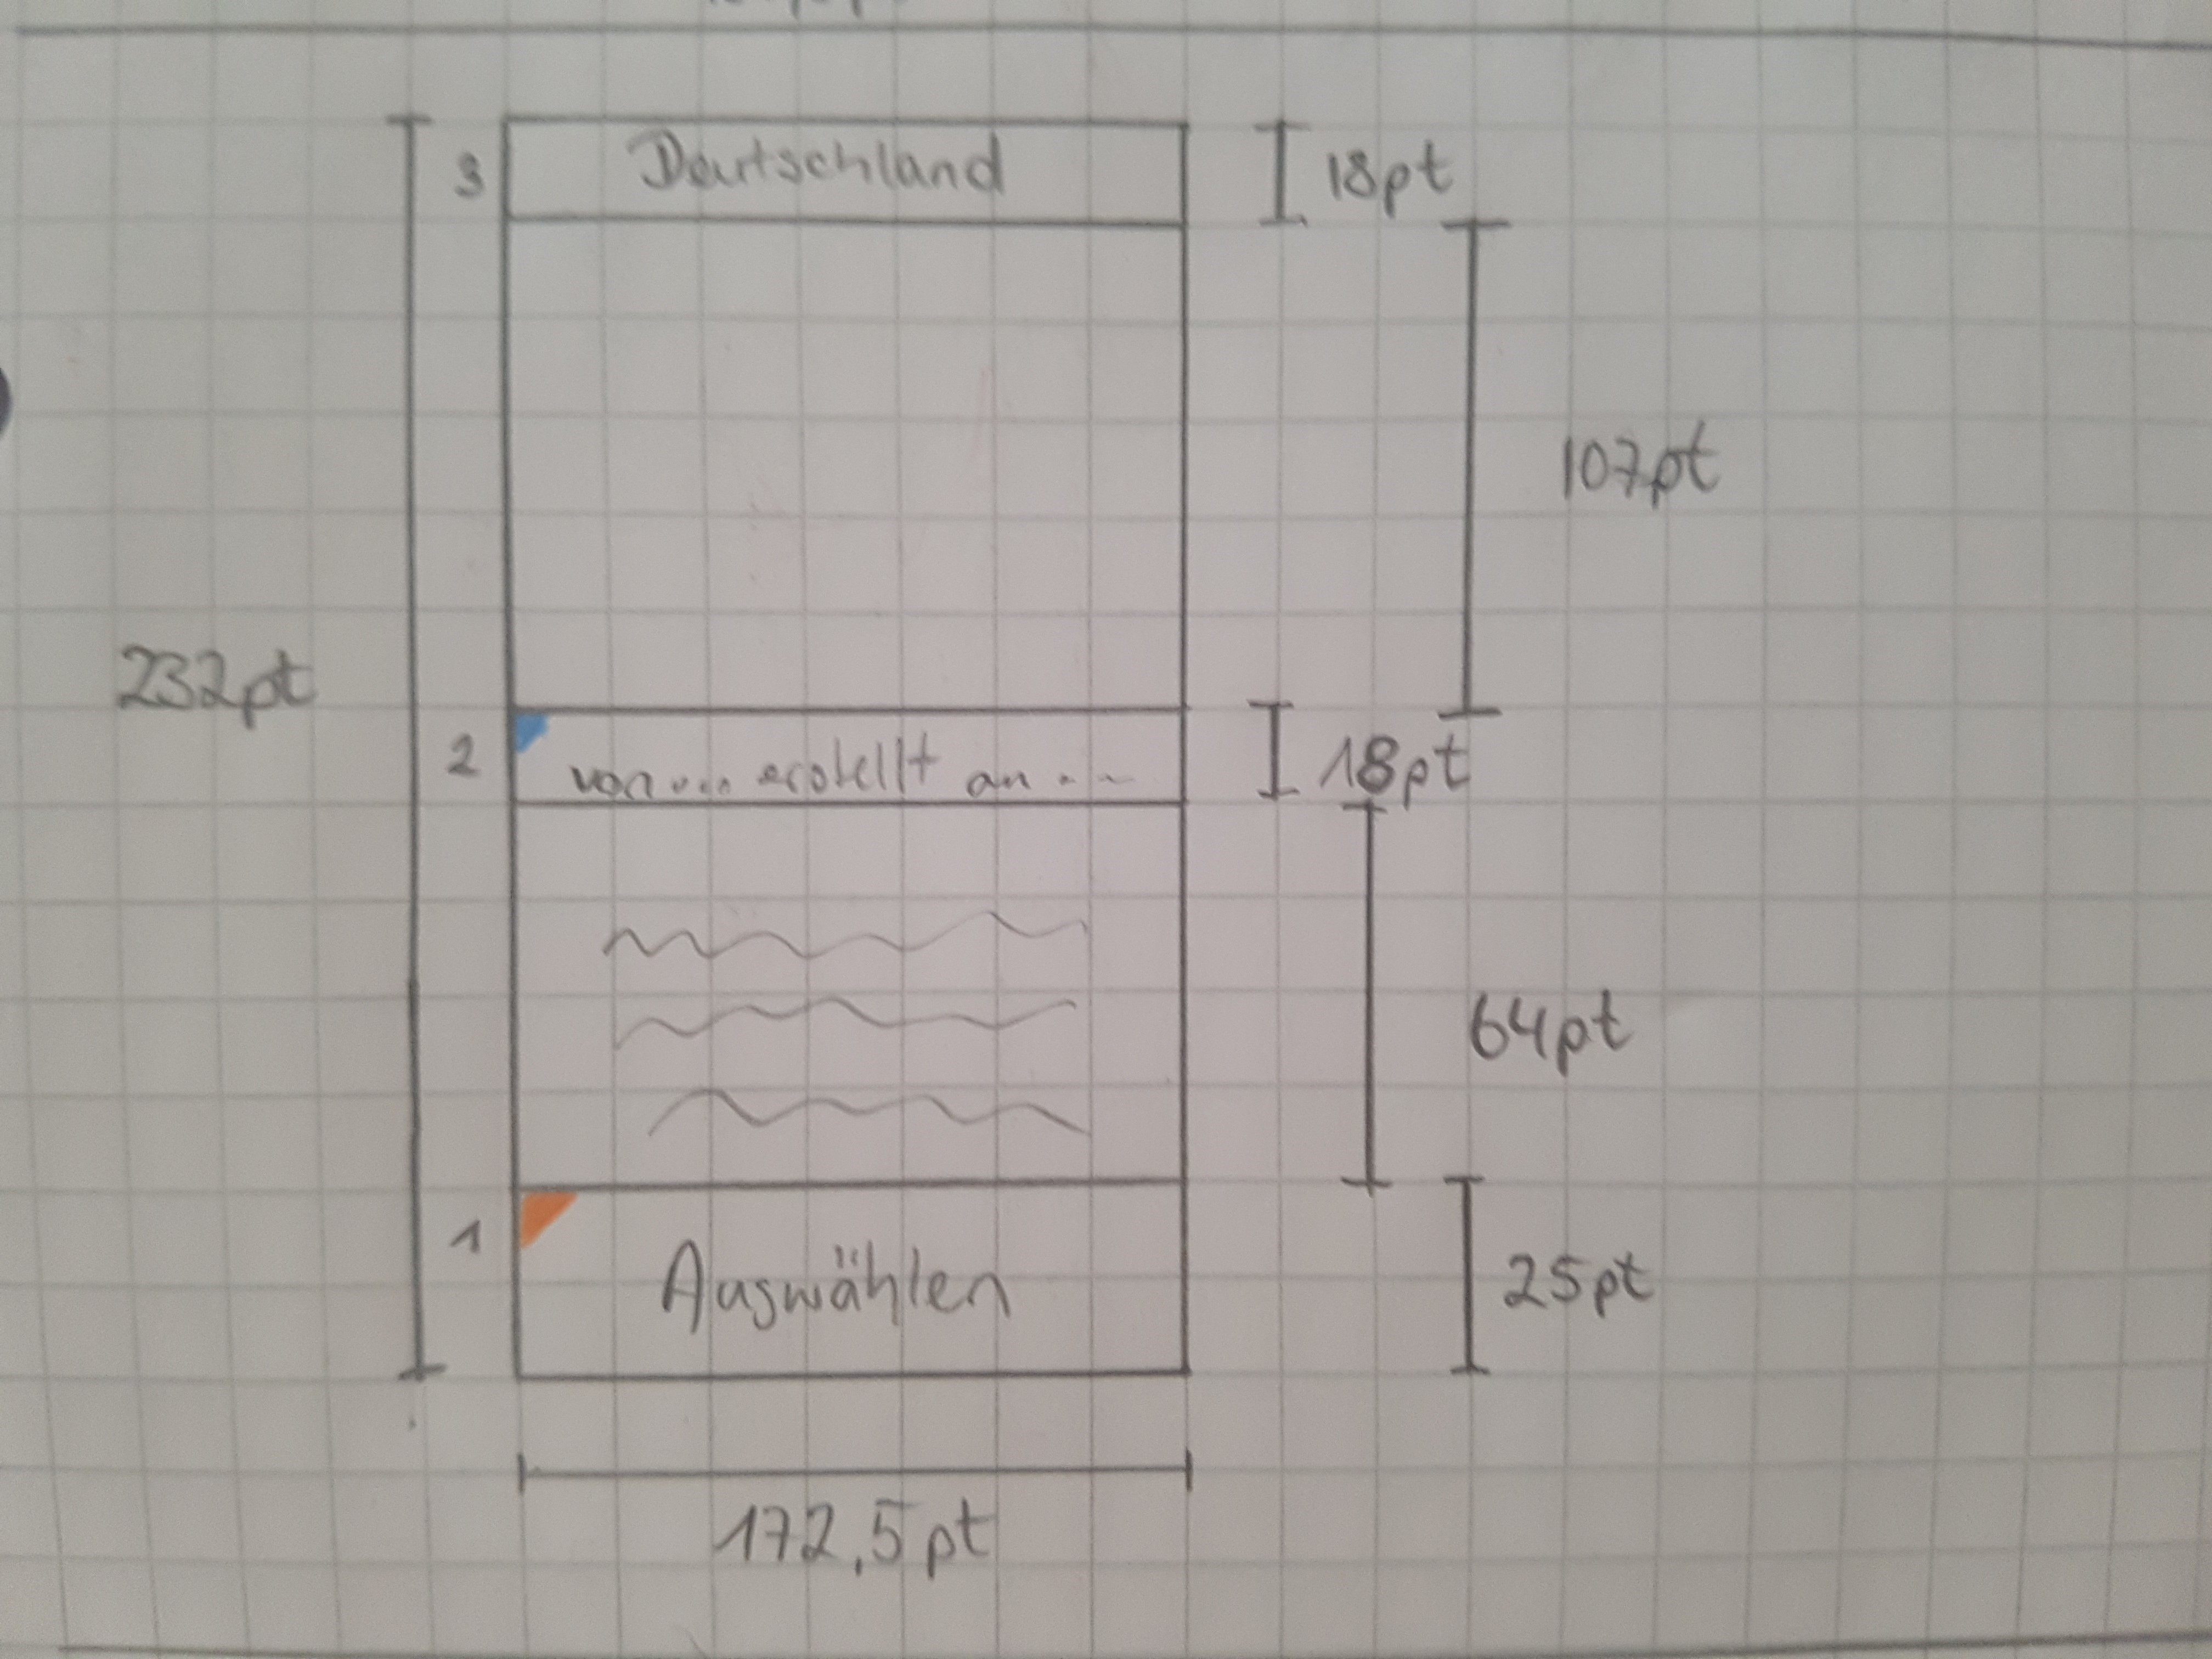 3 Deutschland 18pt
107pt
232pt
2 von ... erstellt an ... 18pt
64pt
1 Auswählen 25pt
172,5pt